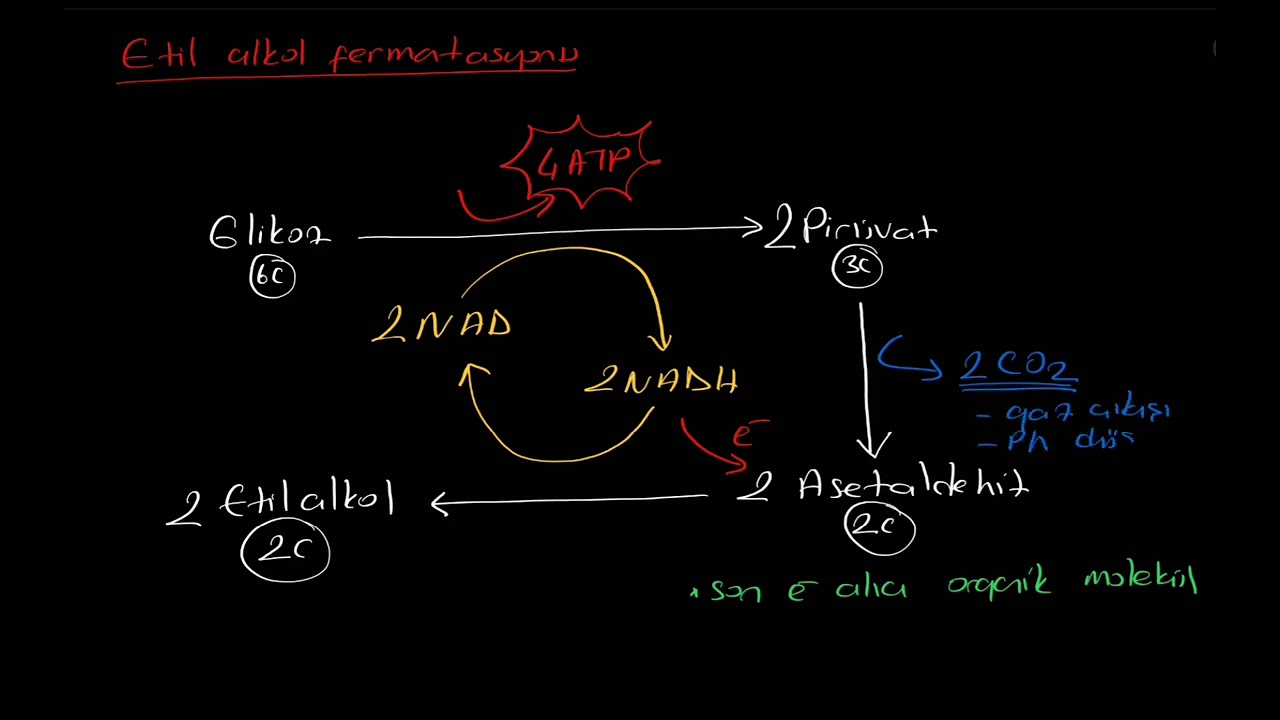 Etil alkol fermatasyonu
4 ATP
Glikoz
6C
2 Pirüvat
3C
2 NAD
2 NADH
e-
2 CO2
- gaz çıkışı
- Ph düş
2 Etil alkol
2C
2 Asetaldehit
2C
* son e- alıcı organik molekül